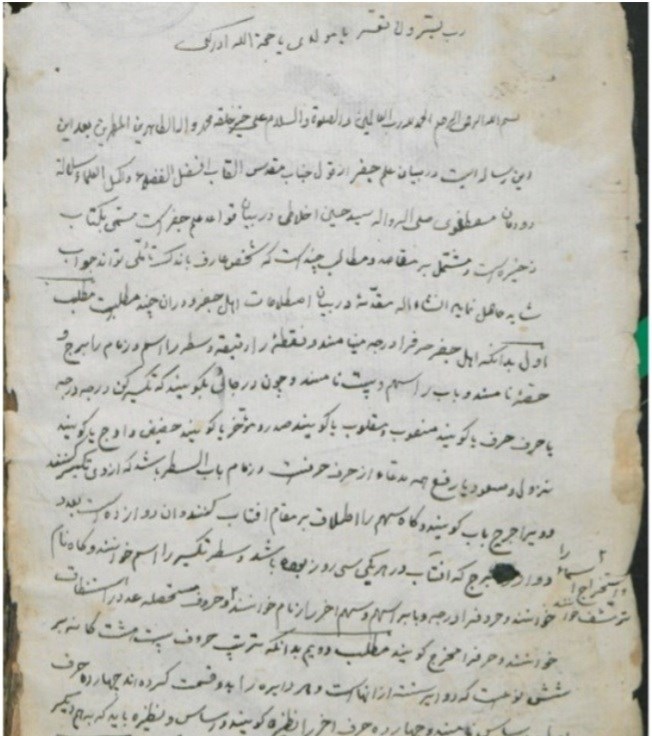 رب یسر ولا تعسر یا مولای یا حجة الله ادرکنی
بسم الله الرحمن الرحیم الحمد لله رب العالمین والصلوة والسلام علی خیر خلقه محمد واله الطاهرین اما بعد این
این رساله ایست در بیان علم جفر از قول جناب مقدس القاب افضل الفضلاء و اکمل العلماء سلاله
دودمان مصطفوی صلی الله واله سید حسین اخلاطی در بیان قواعد علم جفر است مسمی بکتاب
ذخیره است و مشتمل بر مقاصد و مطالب چند است که شخص عارف باندک تأملی تواند جواب
حاصل نماید انشاء الله مقدمة در بیان اصطلاحات اهل جفر و در ان چند مطلبست مطلب
اول بدانکه اهل جفر حرف را درجه مینامند و نقطه را دقیقه و سطر را اسم و زمام را برج و
نامند و باب را سهم و بیت نامند و چون در جائی بگویند که تکسیر کن درجه درجه
یا حرف حرف یا کویند منصوب و مقلوب یا کویند صدر و مؤخر یا کویند حضیض و اوج یا کویند
نزول و صعود یا رفع همه مدعاء از حرف حرفست و زمام باب السطر باشد که از وی تکسیر کنند
برج باب کویند و کاه سهم را اطلاق بر مقام افتاب کنند و ان دوازده است بعدد
برج که افتاب در هریکی سی روز بوده باشد و سطر تکسیر را اسم خوانند و کاه نام
خوانند و حرف را درجه و باب را سهم و سهم اخر را زمام خوانند و حروف مستحصله
خوانند و حرف را مخرج کویند مطلب دویم بدانکه ترتیب حروف بیست هشت کانه بر
شش نوعست که دوایر سته از انهاست و هر دایره را بدو قسمت کرده اند چهارده حرف
اساس نامند و چهارده حرف اخر را نظیره کویند و اساس و نظیره باید که بهم دیکر
اسماء را
استخراج